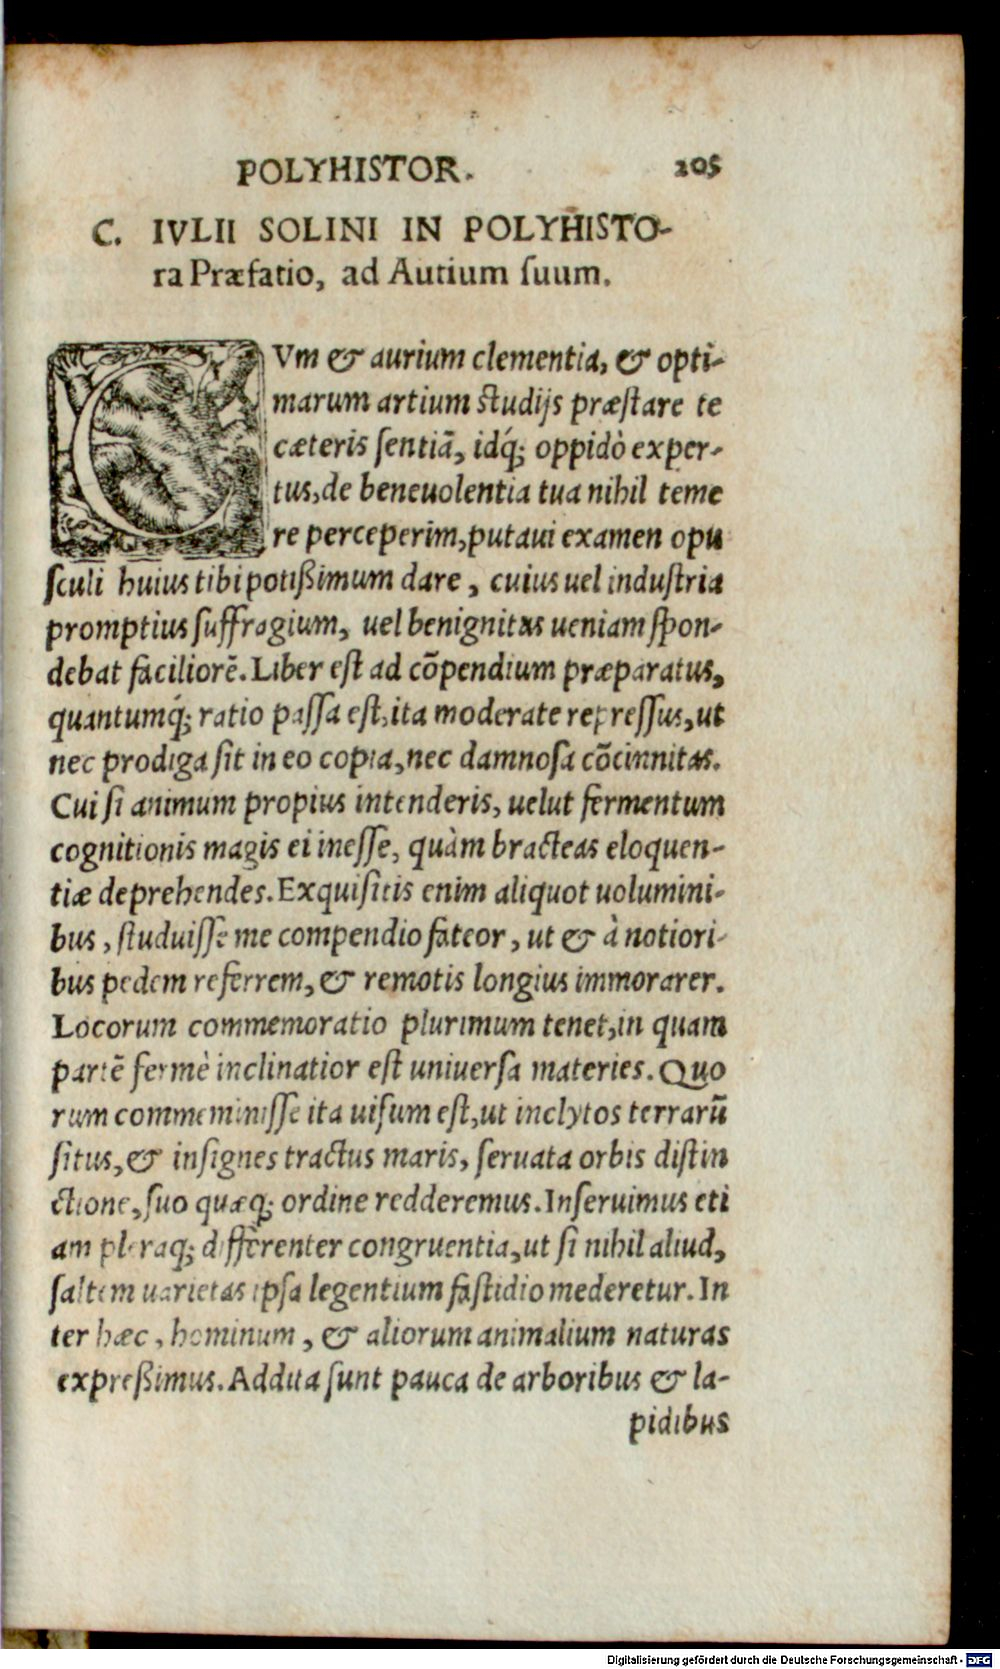 POLYHISTOR. 205
C. IVLII SOLINI IN POLYHISTO-
ra Præfatio, ad Autium suum.
CVm & aurium clementia, & opti-
marum artium studijs præstare te
cæteris sentiã, idq́; oppidò exper-
tus, de beneuolentia tua nihil teme
re perceperim, putaui examen opu
sculi huius tibi potißimum dare, cuius uel industria
promptius suffragium, uel benignitas ueniam spon-
debat faciliorẽ. Liber est ad cõpendium præparatus,
quantumq́; ratio passa est, ita moderate repressus, ut
nec prodiga sit in eo copia, nec damnosa cõcinnitas.
Cui si animum propius intenderis, uelut fermentum
cognitionis magis ei inesse, quàm bracteas eloquen-
tiæ deprehendes. Exquisitis enim aliquot uolumini-
bus, studuisse me compendio fateor, ut & à notiori-
bus pedem referrem, & remotis longius immorarer.
Locorum commemoratio plurimum tenet, in quam
partẽ fermè inclinatior est uniuersa materies. Quo
rum commeminisse ita uisum est, ut inclytos terrarũ
situs, & insignes tractus maris, seruata orbis distin
ctione, suo quæq; ordine redderemus. Inseruimus eti
am pleraq; differenter congruentia, ut si nihil aliud,
saltem uarietas ipsa legentium fastidio mederetur. In
ter hæc, hominum, & aliorum animalium naturas
expreßimus. Addita sunt pauca de arboribus & la-
pidibus
Digitalisierung gefördert durch die Deutsche Forschungsgemeinschaft - DFG